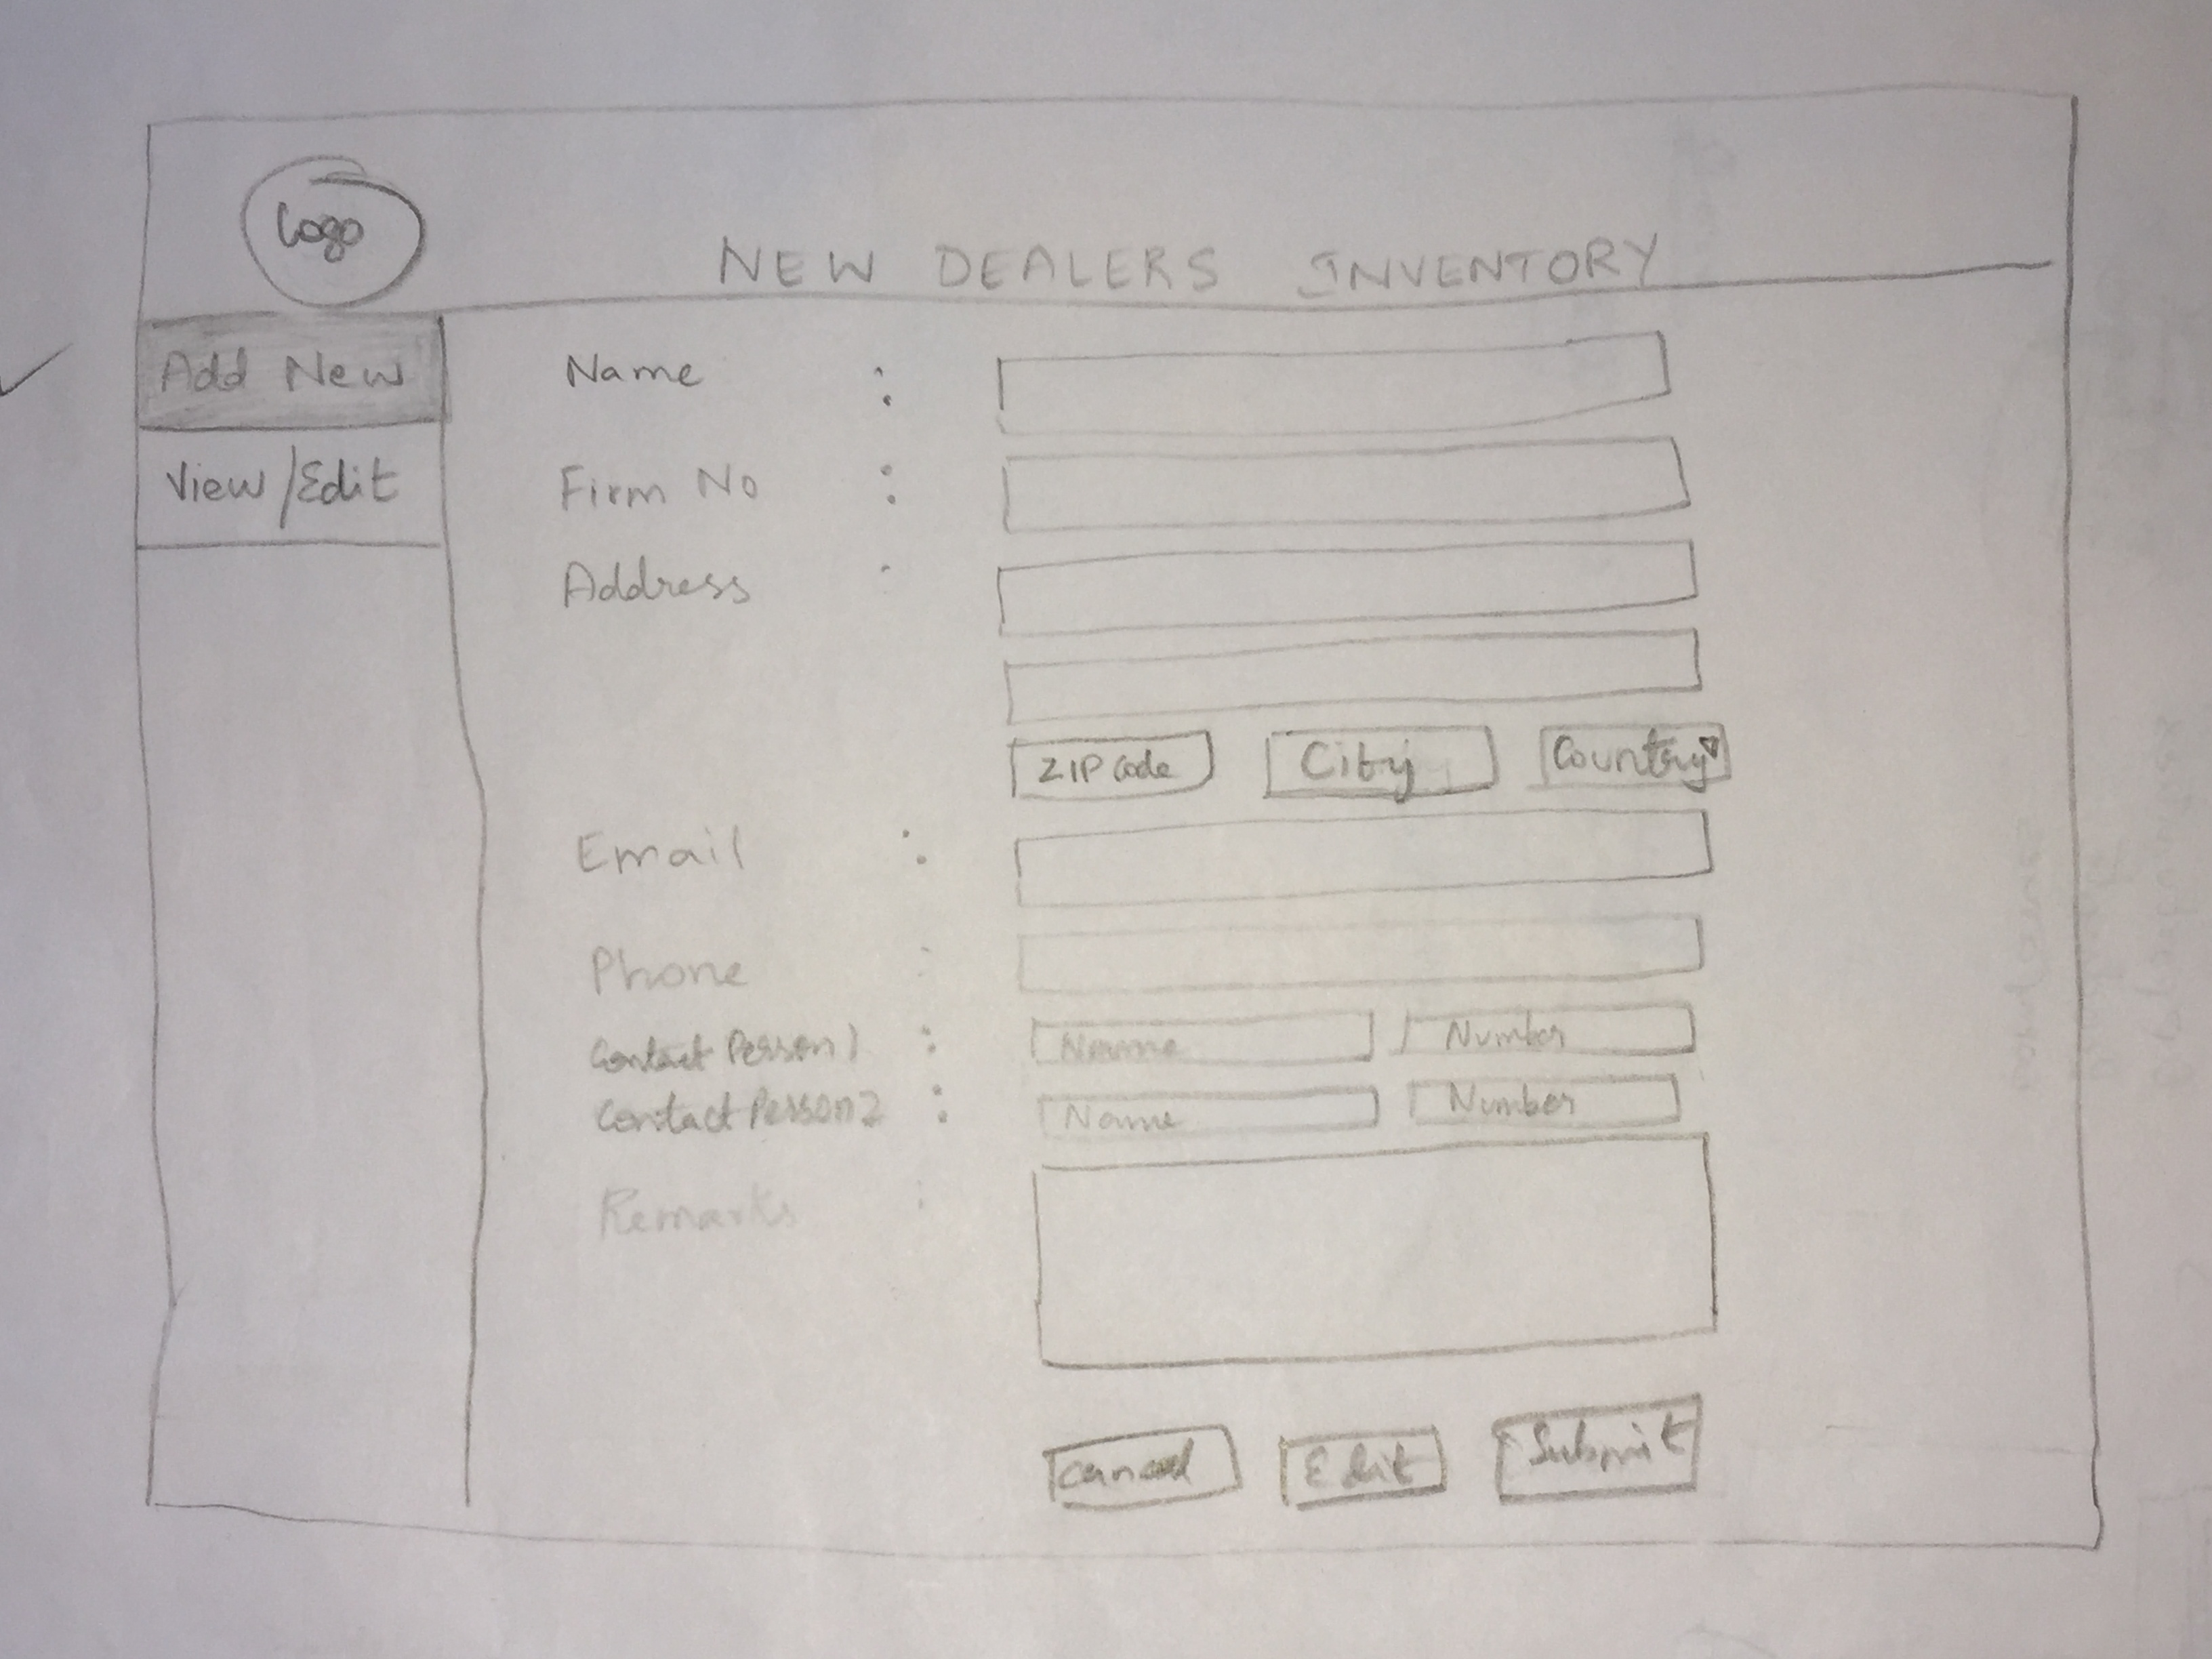 Logo
NEW DEALERS INVENTORY
Add New
View/Edit
Name :
Firm No :
Address :
ZIP Code City Country
Email :
Phone :
Contact Person 1 : Name Number
Contact Person 2 : Name Number
Remarks :
Cancel Edit Submit